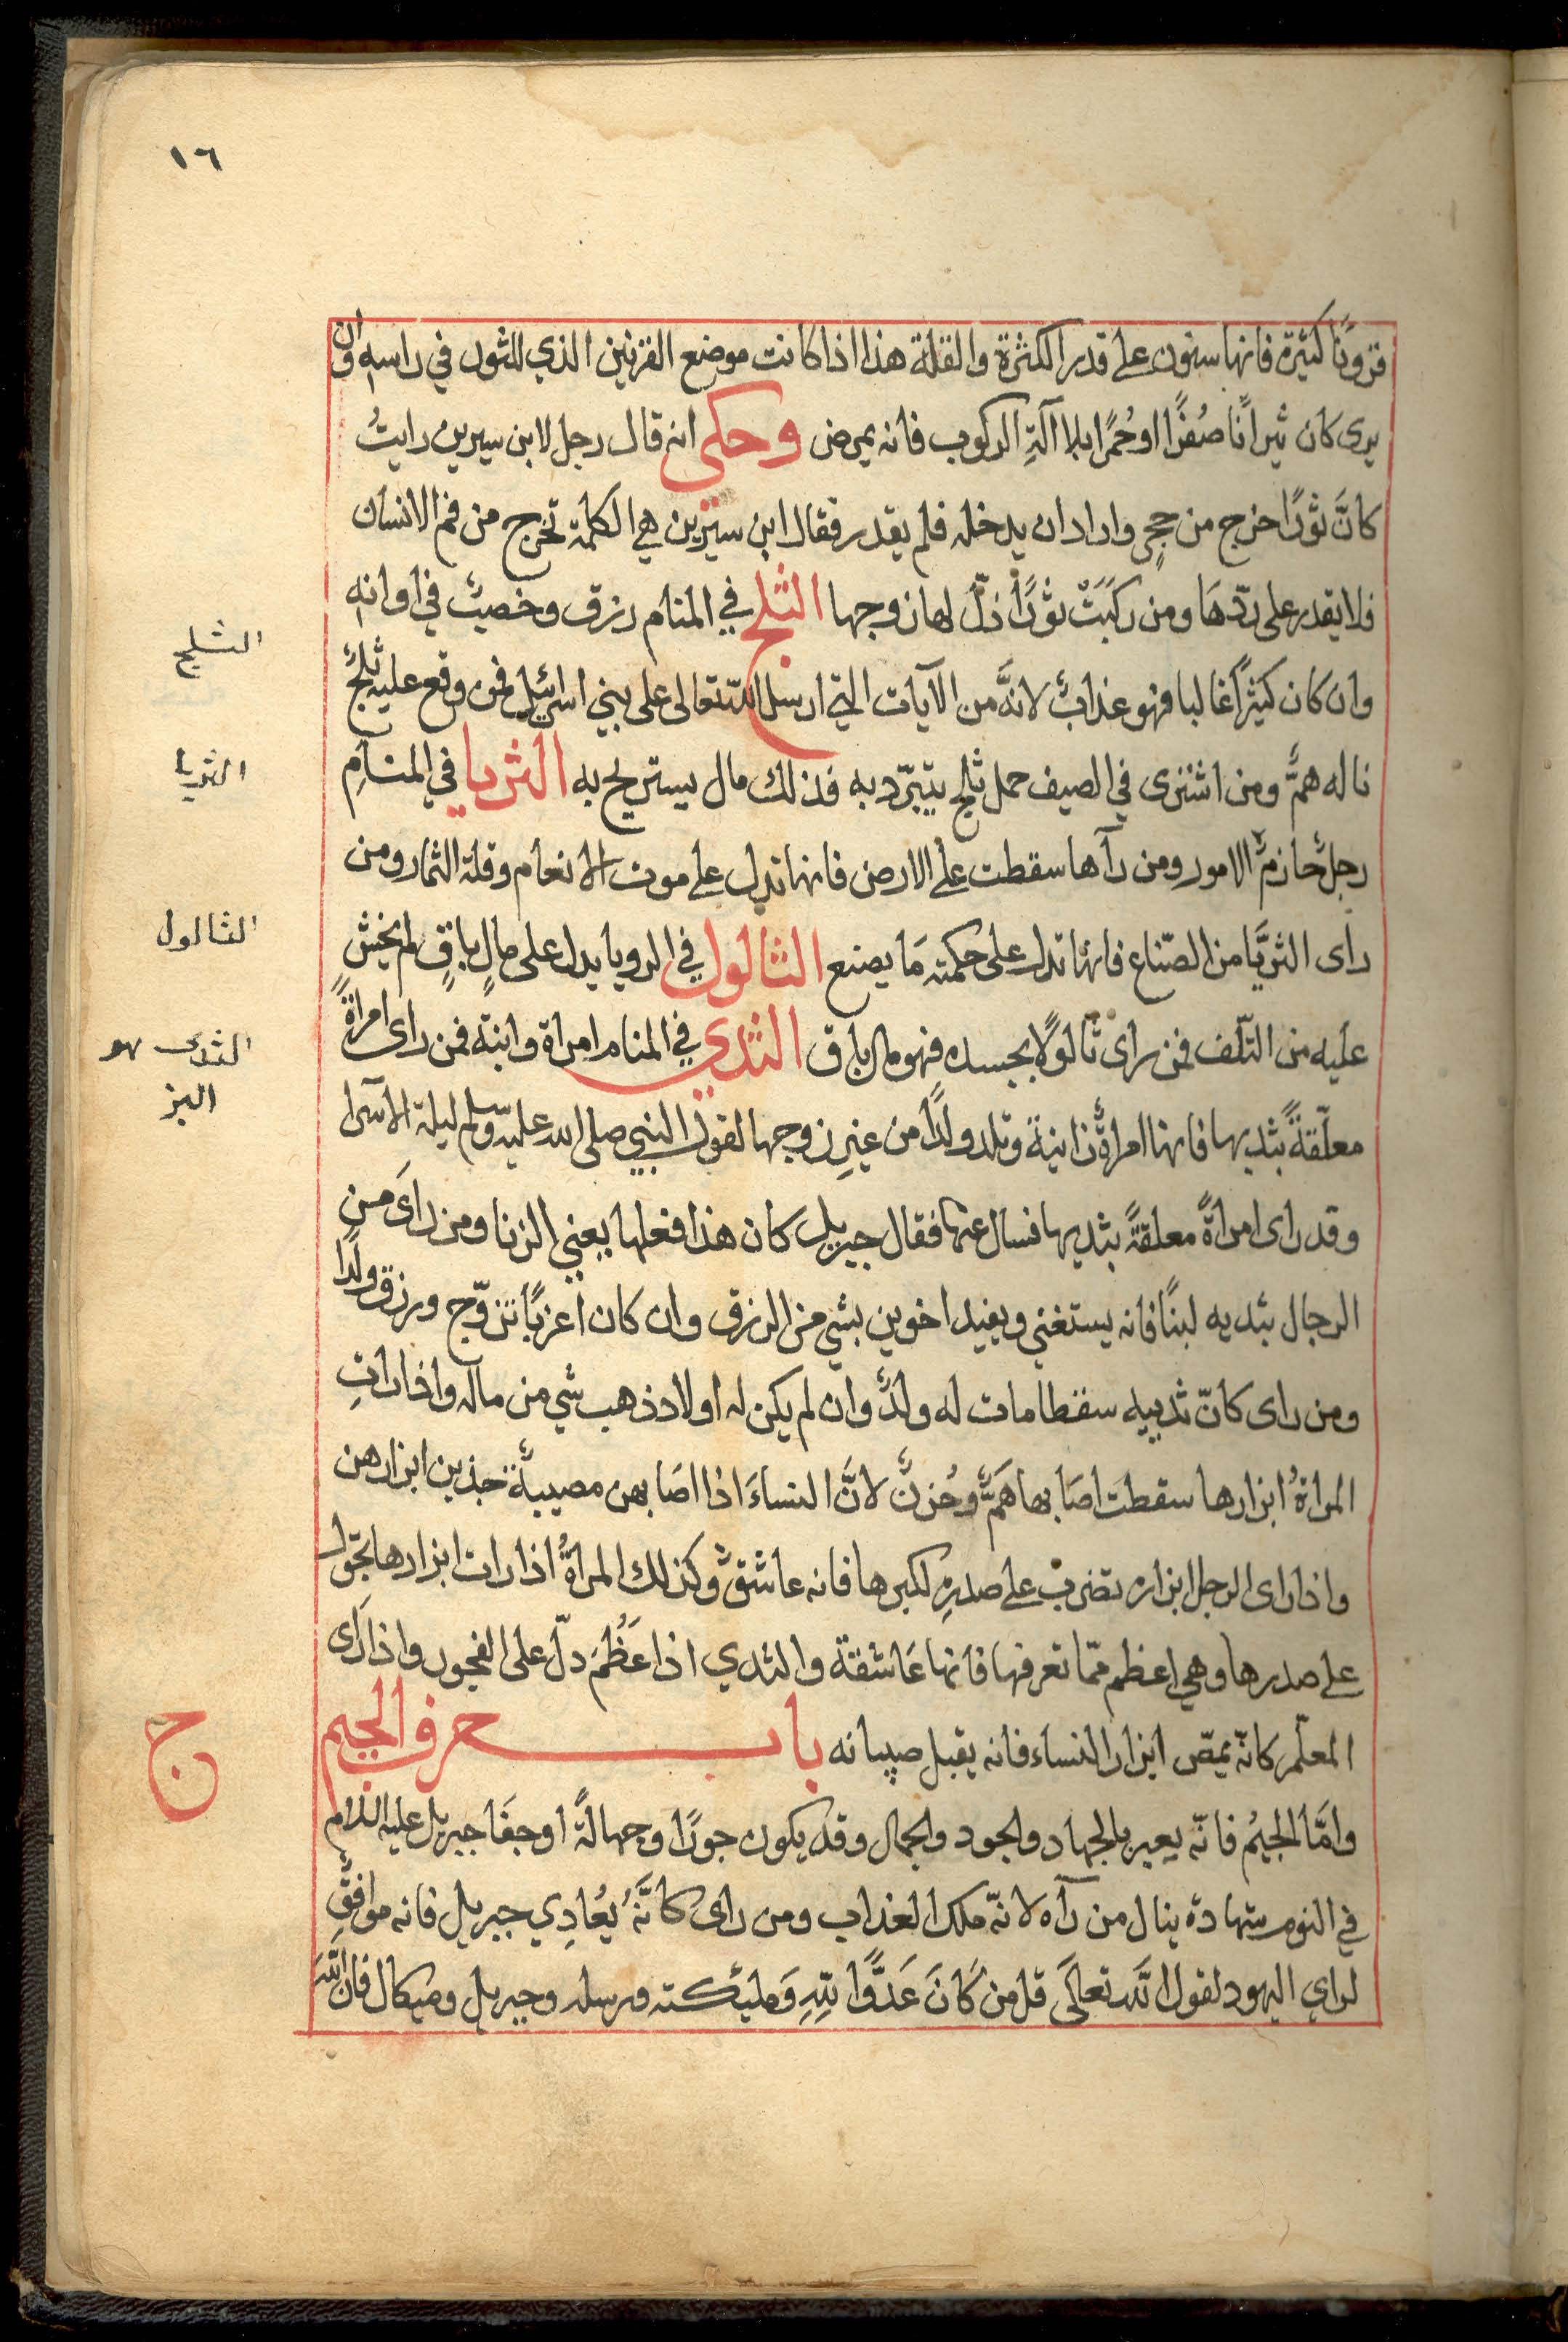 ١٦
قرونًا كثيرة فانها سنون على قدر الكثرة والقلة هذا اذا كانت موضع القرنين الذي للثور في راسه وان
يرى كان ثيرانًا صُفرًا او حُمرًا بلا آلةِ الركوب فانه يمرض وحكى انه قال رجل لابن سيرين رايتُ
كانَّ ثورًا خرج من حجرٍ واراد ان يدخله فلم يقدر فقال ابن سيرين هي الكلمة تخرج من فم الانسان
فلا يقدر على ردّهَا ومن ركبَتْ ثورًا ذلّ لها زوجها الثلج في المنام رزق وخصبٌ في اوانهِ
وان كان كثيرًا غالبا فهو عذابٌ لانَّه من الآيات التي ارسل الله تعالى على بني اسرائيل فمن وقع عليه ثلجٌ
ناله همٌّ ومن اشترى في الصيف حمل ثلج يتبرّد به فذلك مال يستريح به الثريا في المنامِ
رجلٌ حازمٌ الامور ومن رآها سقطت على الارض فانها تدل على موت الانعام وقلة الثمار ومن
راى الثريَّا من الصّناع فانها تدل على حكمته مَا يصنع الثالول في الرويا يدل على مالٍ باقٍ لم يخش
عليه من التّلف فمن راى ثالولًا بجسده فهو مال باق الثدي في المنام امراة وابنة فمن راى امراةً
معلّقةً بثديها فانها امراةٌ زانية وتلد ولدًا من غيرِ زوجها لقول النبي صلى الله عليه وسلم ليلة الاسرا
وقد راى امراةً معلقةً بثديها فسال عنها فقال جبريل كان هذا فعلها يعني الزنا ومن راىَ من
الرجال بثديه لبنًا فانه يستغني ويفيد اخوين بشيٍ من الرزق وان كان اعزبًا تزوّج ورزق ولدًا
ومن راى كانّ ثدييه سقطا مات له ولدٌ وان لم يكن له اولاد ذهب شي من ماله واذا راتِ
المراةُ ابزارها سقطت اصَابها همٌّ وحُزنٌ لانَّ النساءَ اذا اصَابهن مصيبةٌ جذبن ابزارهن
واذا راى الرجل ابزاره تضربُ على صدرهِ لكبرها فانه عاشقٌ وكذلك المراةُ اذا رات ابزارها تحوّل
على صدرها وهي اعظم ممّا تعرفها فانها عَاشقة والثدي اذا عَظُمَ دلّ على الفجور واذا رَاى
المعلّم كانّه يمصّ ابزار النساء فانه يقبل صبيانه باب حرف الجيم
وامَّا الجيمُ فانّه يعبر بالجهاد والجود والجمال وقد يكون جورًا وجهالةً او جفَا جبريل عليه السلام
في النوم شهادة ينال من رآه لانّه ملك العذاب ومن راى كانَّهُ يُعادِي جبريل فانه موافقٌ
لراي اليهود لقول الله تعالَى قل من كَانَ عَدوًّا للهِ وَمليكته ورسله وجبريل وميكال فان الله
الثلج
الثريا
الثالول
الثدى هو
البز
ج